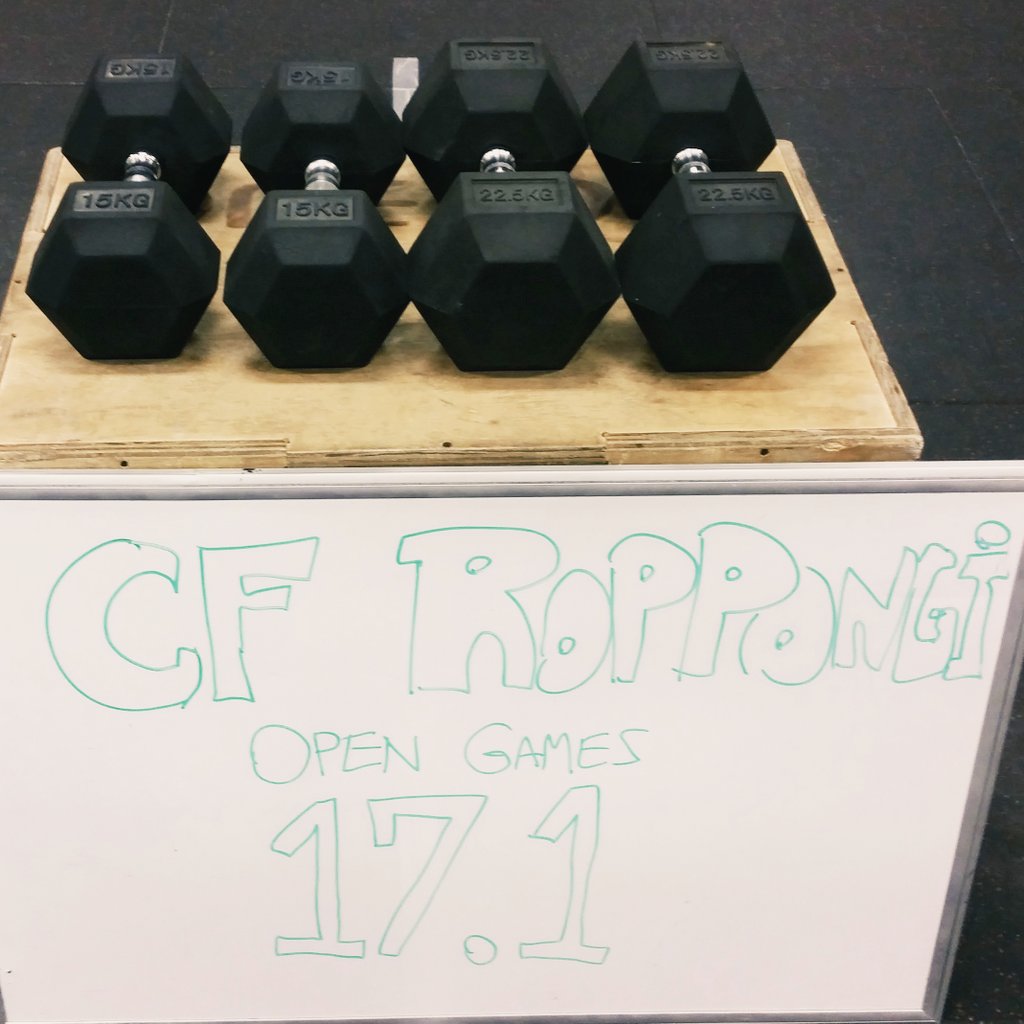 15KG 15KG 22.5KG 22.5KG
15KG 15KG 22.5KG 22.5KG
CF ROPPONGi
OPEN GAMES
17.1